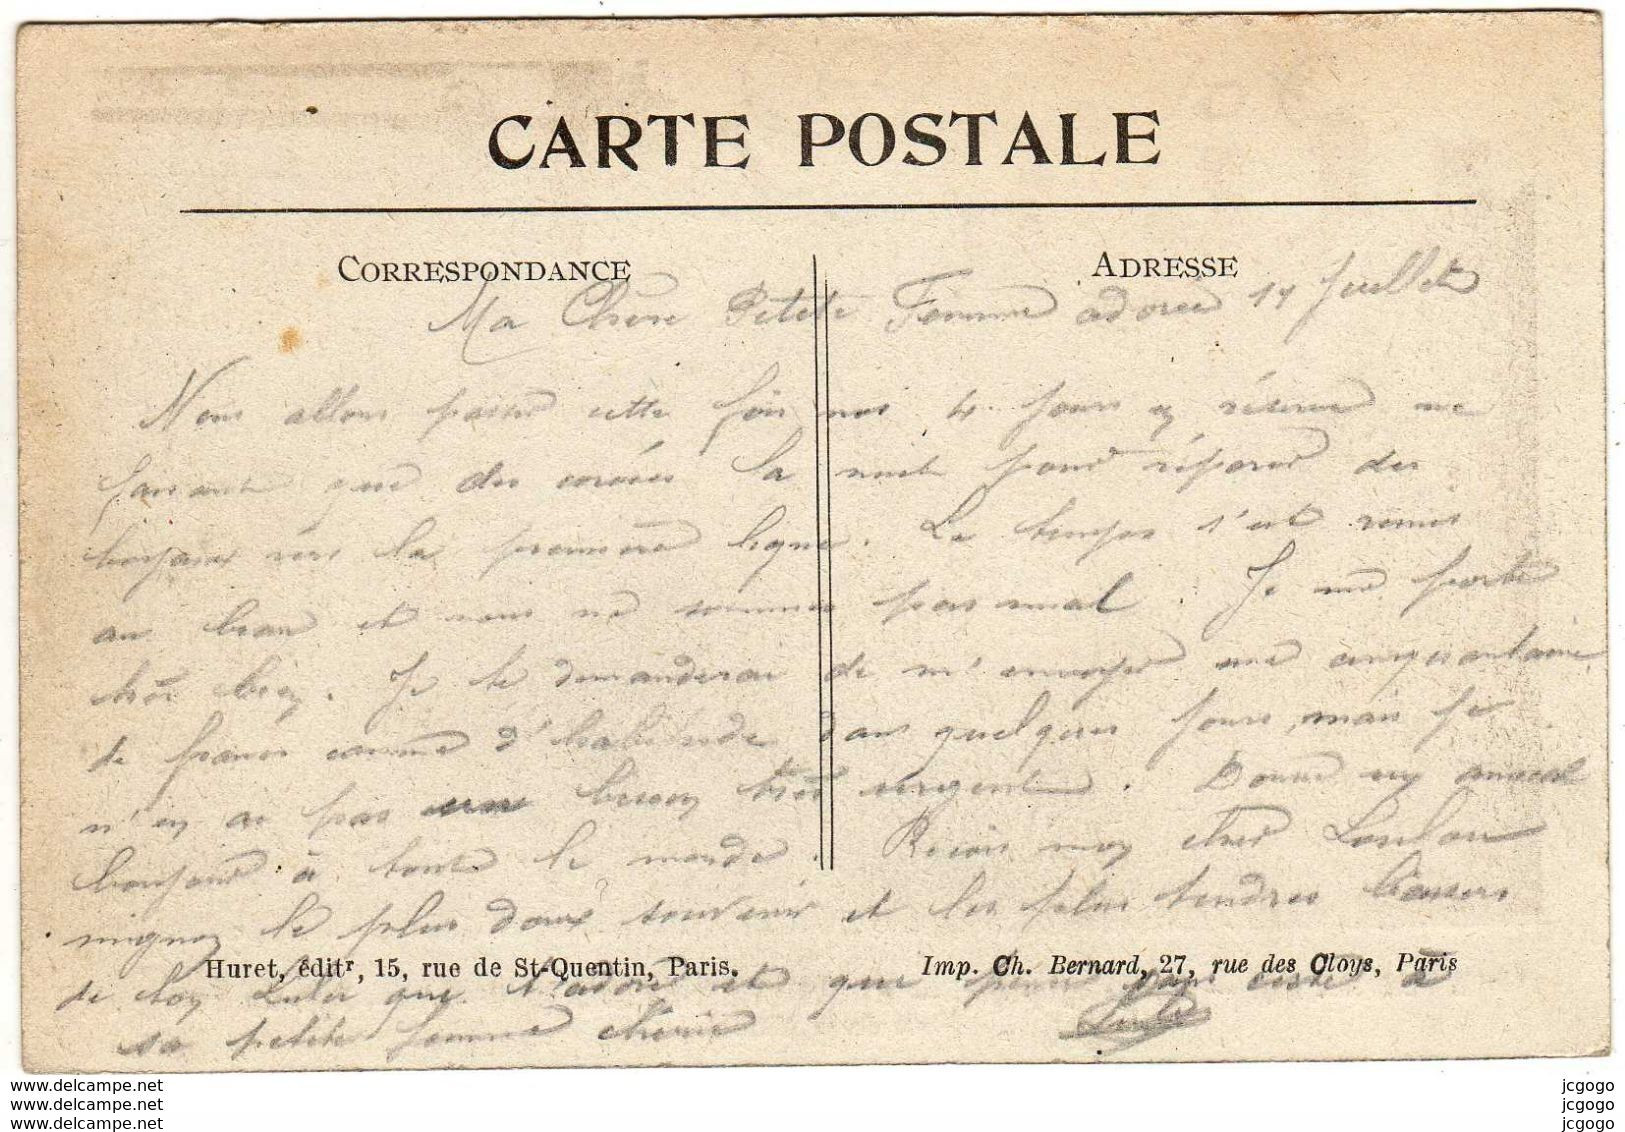 CARTE POSTALE
CORRESPONDANCE
ADRESSE
Ma Chère Petite Femme adorée 17 Juillet
Nous allons passer cette fois nos 4 jours en réserve ne
faisant que des corvées la nuit pour réparer des
boyaux vers la première ligne. Le temps s'est remis
au beau et nous ne sommes pas mal. Je me porte
très bien. Je te demanderai de m'envoyer une cinquantaine
de francs comme d'habitude dans quelques jours, mais je
n'en ai pas un besoin très urgent. Donne un amical
bonjour à tout le monde. Reçois mon cher Loulou
mignon le plus doux souvenir et les plus tendres baisers
Huret, éditr, 15, rue de St-Quentin, Paris.
Imp. Ch. Bernard, 27, rue des Cloys, Paris
de ton Lulu que t'adore et que pense sans cesse à
sa petite femme chérie
www.delcampe.net
www.delcampe.net
www.delcampe.net
jcgogo
jcgogo
jcgogo